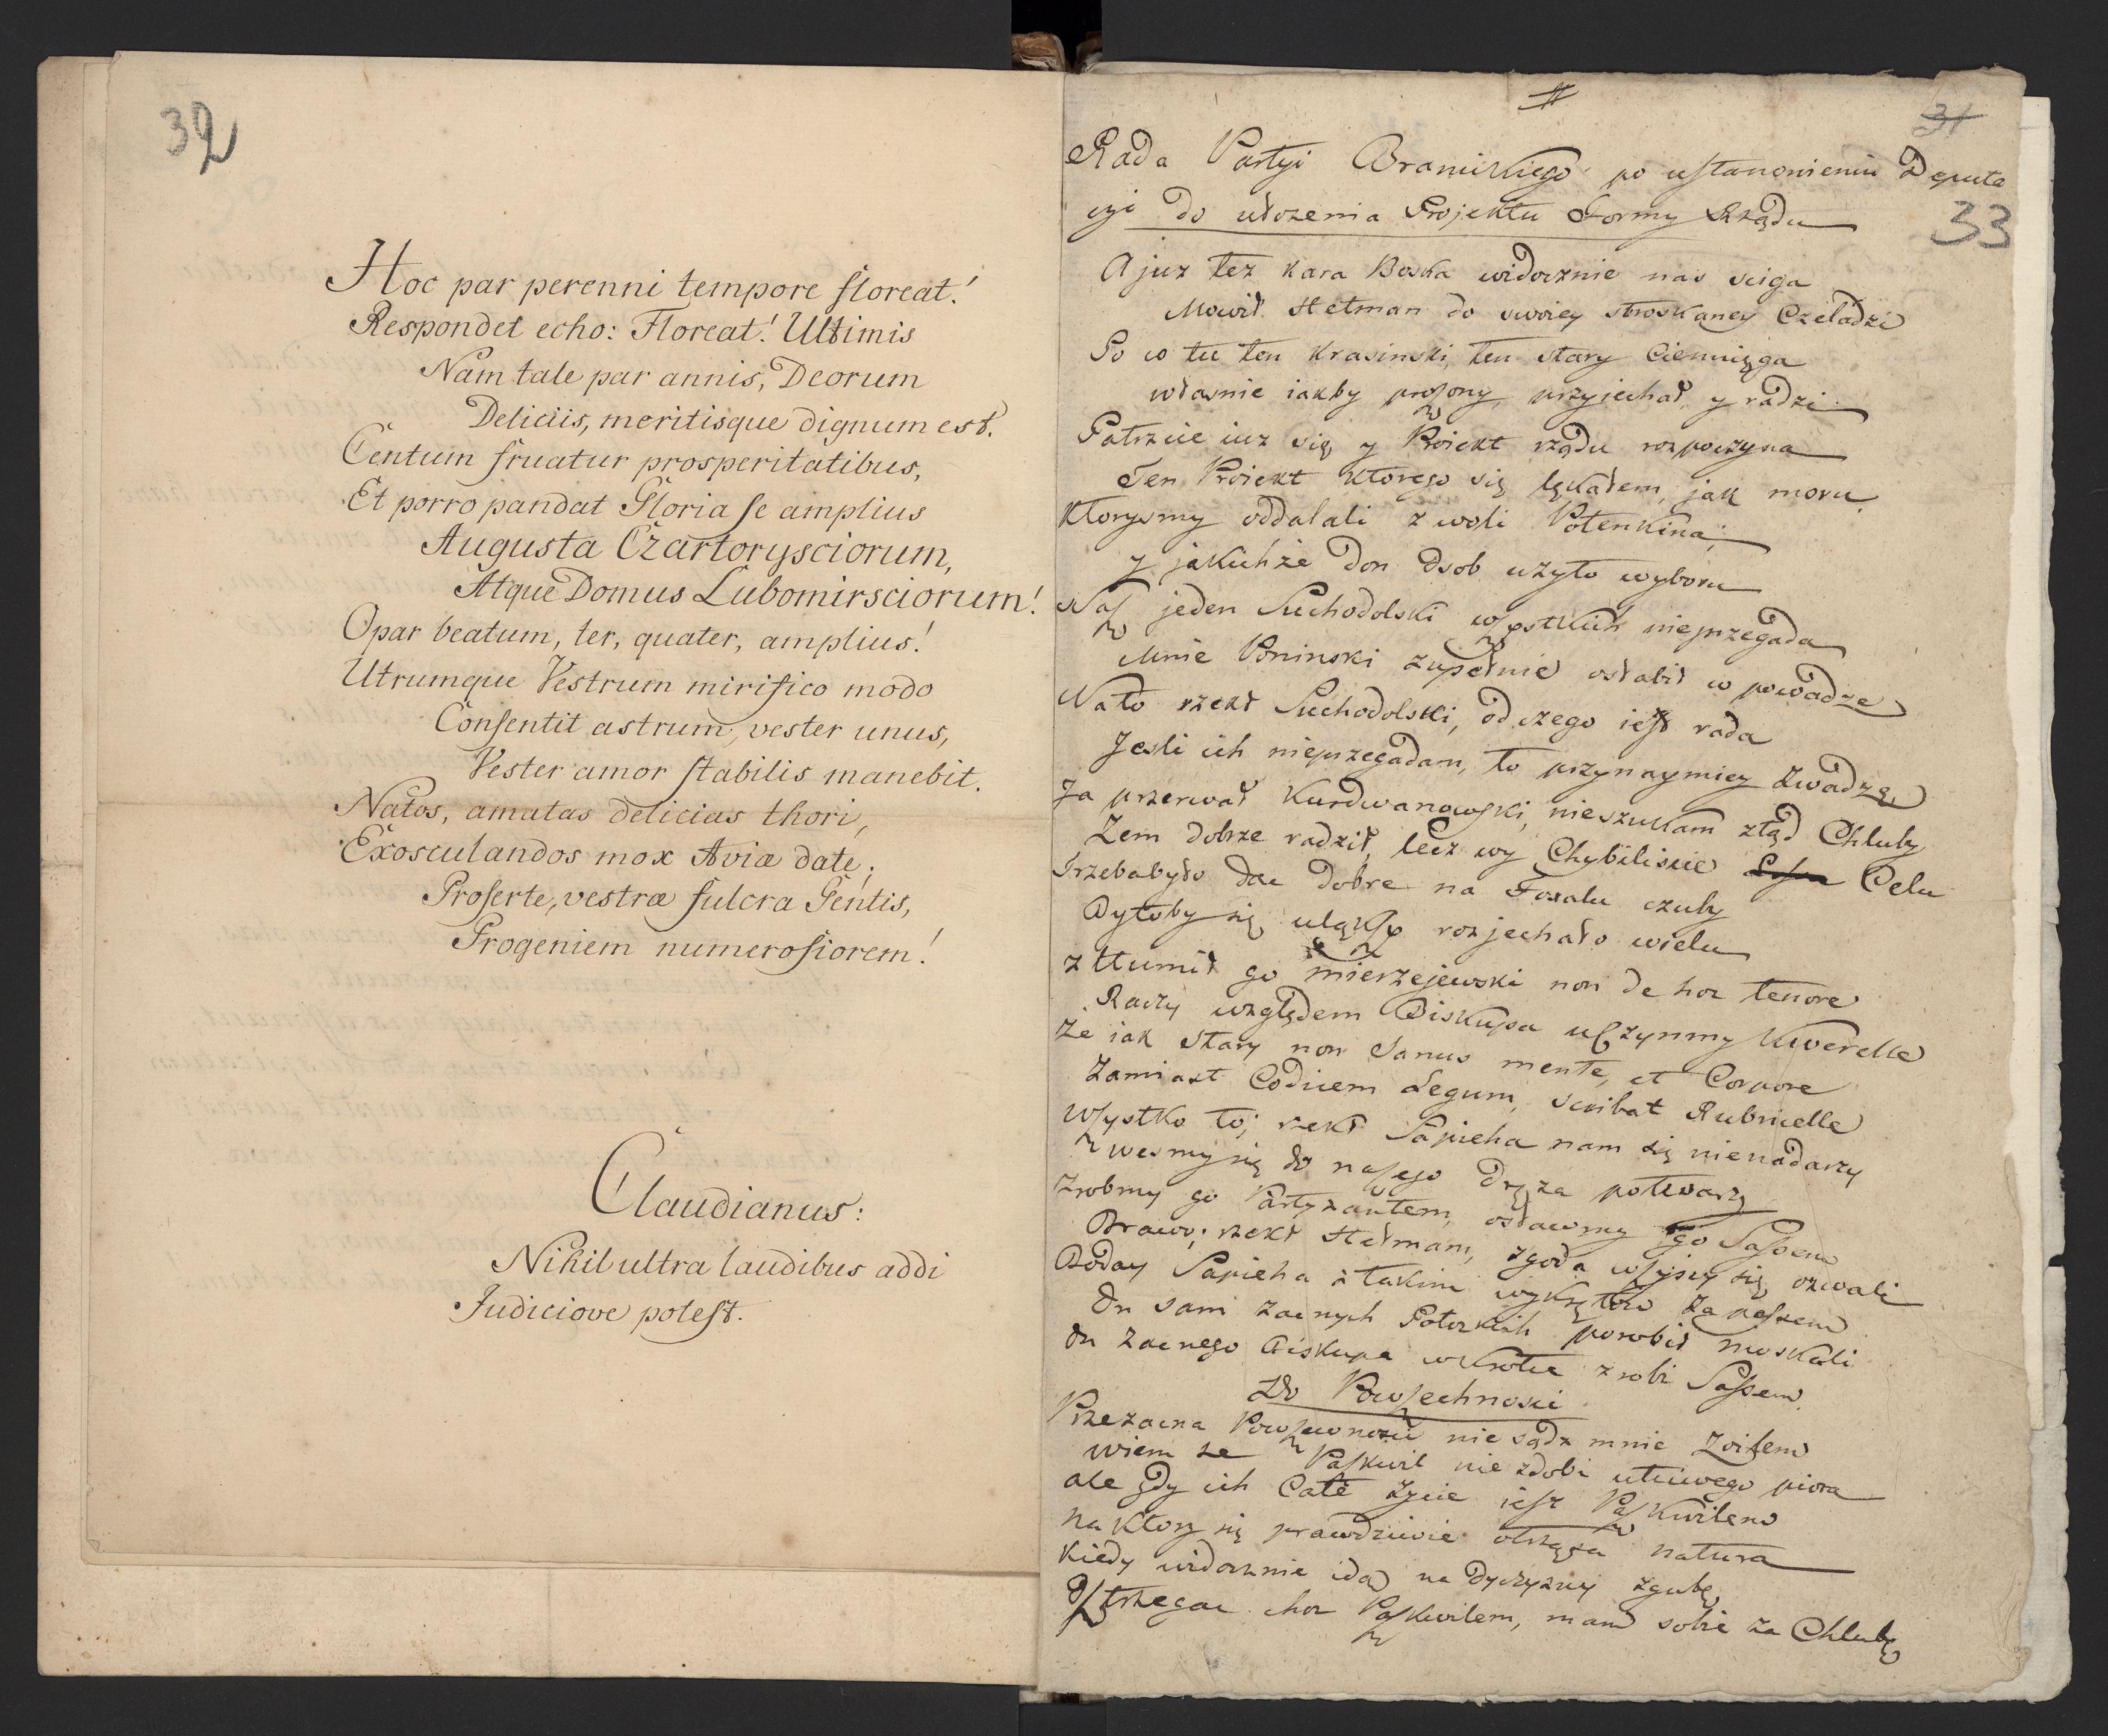 32
Hoc par perenni tempore floreat!
Respondet echo: Floreat! Ultimis
Nam tale par annis, Deorum
Deliciis, meritisque dignum est.
Centum fruatur prosperitatibus,
Et porro pandat Gloria se amplius
Augusta Czartorysciorum,
Atque Domus Lubomirsciorum!
O par beatum, ter, quater, amplius!
Utrumque Vestrum mirifico modo
Consentit astrum, vester unus,
Vester amor stabilis manebit.
Natos, amatas delicias thori,
Exosculandos mox Aviæ date;
Proferte, vestræ fulcra Gentis,
Progeniem numerosiorem!
Claudianus:
Nihil ultra laudibus addi
Judiciove potest.
31
33
Rada Partyi Branickiego po ustanowieniu Deputa
cyi do ułozenia Projektu Formy Rządu
A juz tez kara Boska widocznie nas sciga
Mowił Hetman do swoiey stroskaney Czeladzi
Po co tu ten Krasinski, ten stary Ciemnięga
własnie iakby proszony, przyjechał y radzi
Patrzcie iuz się y Proiekt rządu rozpoczyna
Ten Proiekt ktorego się lękałem, jak moru
Ktorysmy oddalali z woli Potenkina;
y jakichże don Osob uzyto wyboru
Nasz jeden Suchodolski wszystkich nieprzegada
Mnie Poninski zupełnie osłabił w powadze
Na to rzekł Suchodolski, od czego iest rada
Jesli ich nieprzegadam, to przynaymniey zwadzę
Ja przerwał Kurdwanowski, nieszukam ztąd Chluby
Zem dobrze radził, lecz wy Chybiliscie Celu
Trzebabyło dac dobre na Foxalu czuby
Bytoby się ulększy rozjechało wielu
ztłumił go Mierzejewski non de hoc tenore
Raczy względem Biskupa uczynmy kwerelle
że iak stary non sanus mente, et Corpore
Zamiast Codicem Legum, scribat Rubricelle
Wszystko to; rzekł Sapieha nam się nienadarzy
wesmy się do naszego Oręza potwarzy
Zrobmy go Partyzantem, osławmy go Sassem
Brawo; rzekł Hetman, zgoda wszyscy się ozwali
Boday Sapieha z takim wykrętow zapassem
On sam zacnych Potockich porobił moskali
On zacnego Biskupa wkrotce zrobi Sassem.
Do Powszechnosci
Przezacna Powszechnosci nie sądz mnie Zoilem
wiem ze Paszkwil nie zdobi utciwego piora
ale gdy ich Całe życie iest Paszkwilem
na ktory się prawdziwie otrząsa natura
Kiedy widocznie idą na Oyczyzny zgubę
Ostrzegac choc Paszkwilem, mam sobie za Chlubę